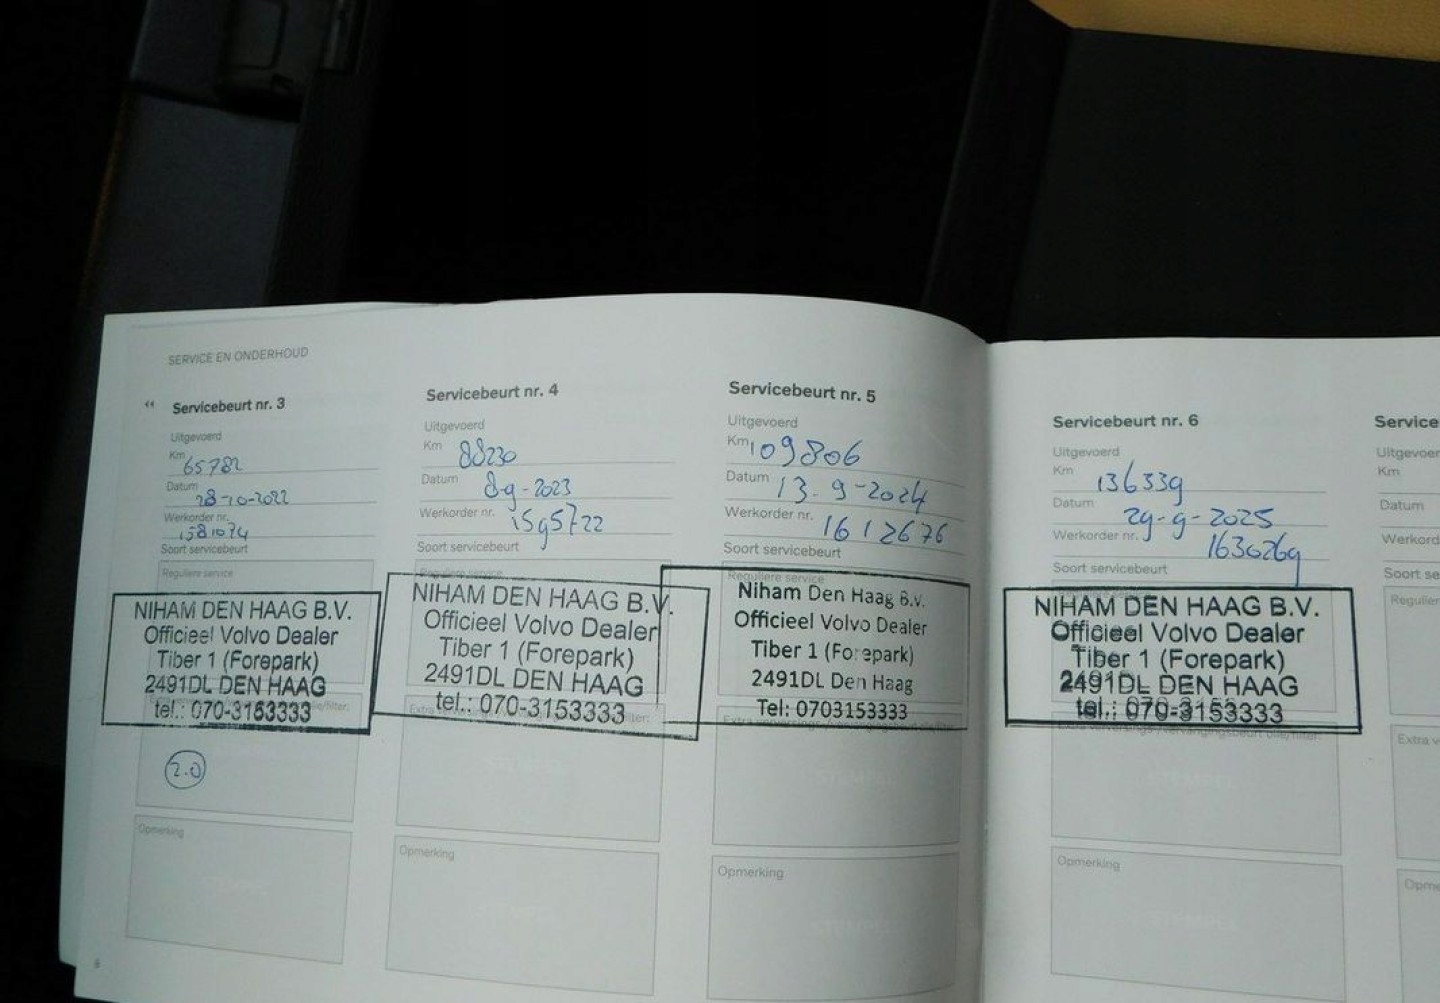 SERVICE EN ONDERHOUD
Servicebeurt nr. 3
Uitgevoerd
Km 65782
Datum 28-10-2022
Werkorder nr. 1581074
Soort servicebeurt
Reguliere service
NIHAM DEN HAAG B.V.
Officieel Volvo Dealer
Tiber 1 (Forepark)
2491DL DEN HAAG
tel.: 070-3153333
2.0
Opmerking
8
Servicebeurt nr. 4
Uitgevoerd
Km 88230
Datum 8-9-2023
Werkorder nr. 1595722
Soort servicebeurt
Reguliere service
NIHAM DEN HAAG B.V.
Officieel Volvo Dealer
Tiber 1 (Forepark)
2491DL DEN HAAG
tel.: 070-3153333
Opmerking
Servicebeurt nr. 5
Uitgevoerd
Km 109806
Datum 13-9-2024
Werkorder nr. 1612676
Soort servicebeurt
Reguliere service
Niham Den Haag B.V.
Officieel Volvo Dealer
Tiber 1 (Forepark)
2491DL Den Haag
Tel: 0703153333
Opmerking
Servicebeurt nr. 6
Uitgevoerd
Km 136339
Datum 29-9-2025
Werkorder nr. 1630269
Soort servicebeurt
NIHAM DEN HAAG B.V.
Officieel Volvo Dealer
Tiber 1 (Forepark)
2491DL DEN HAAG
tel.: 070-3153333
Extra verversings-/vervangingsbeurt olie/filter:
Opmerking
Service
Uitgevoer
Km
Datum
Werkord
Soort se
Regulier
Extra v
Opme